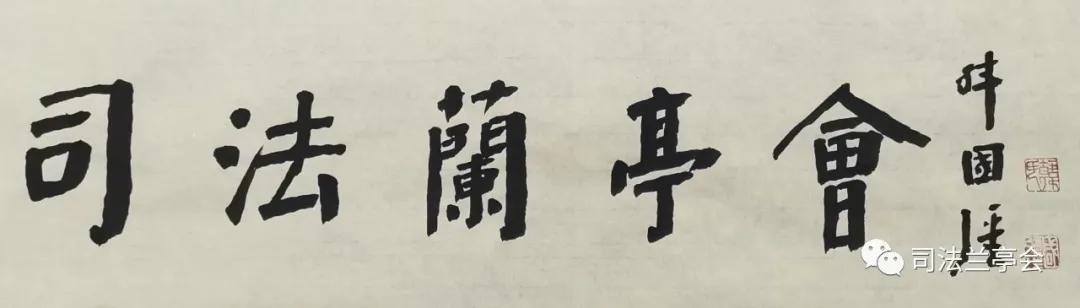 司法蘭亭會
國
司法兰亭会